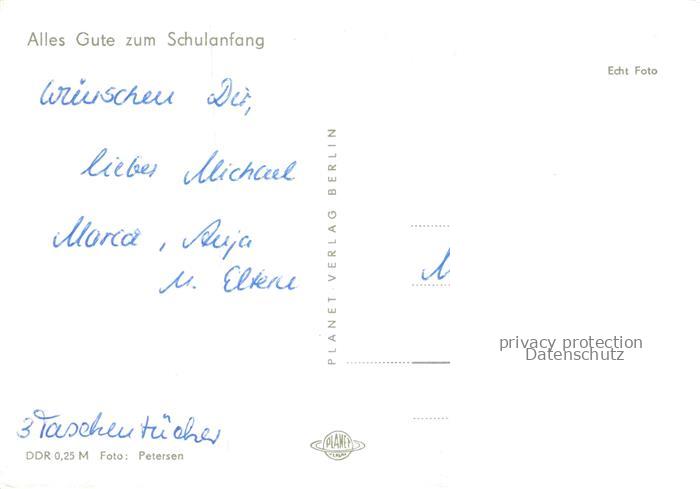 Alles Gute zum Schulanfang
Echt Foto
Wünschen Dir,
lieber Michael
Marco, Anja
u. Eltern
PLANET-VERLAG BERLIN
M
privacy protection
Datenschutz
3 Taschentücher
DDR 0,25 M Foto: Petersen
PLANET
VERLAG